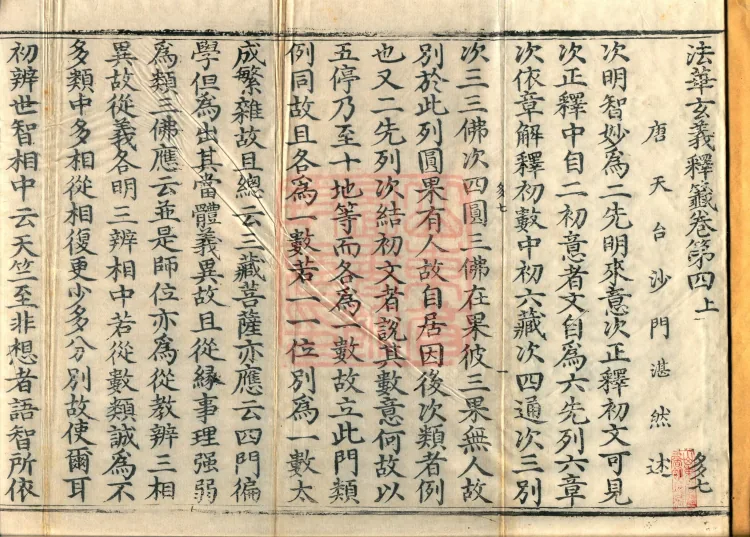 法華玄義釋籤卷第四上
多七
唐天台沙門湛然述
次明智妙為二先明來意次正釋初文可見
次正釋中自二初意者文自為六先列六章
次依章解釋初數中初六藏次四通次三別
多七 一
次三三佛次四圓三佛在果彼三果無人故
別於此列圓果有人故自居因後次類者例
也又二先列次結初文者說其數意何故以
五停乃至十地等而各為一數故立此門類
例同故且各為一數若一一位別為一數太
成繁雜故且總云三藏菩薩亦應云四門徧
學但為出其當體義異故且從緣事理强弱
為類三佛應云並是師位亦為從教辨三相
異故從義各明三辨相中若從數類誠為不
多類中多相從相復更少多分別故使爾耳
初辨世智相中云天竺至非想者語智所依